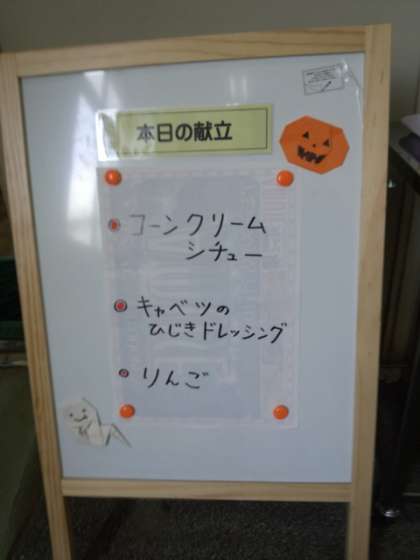 本日の献立
コーンクリーム
シチュー
キャベツの
ひじきドレッシング
りんご